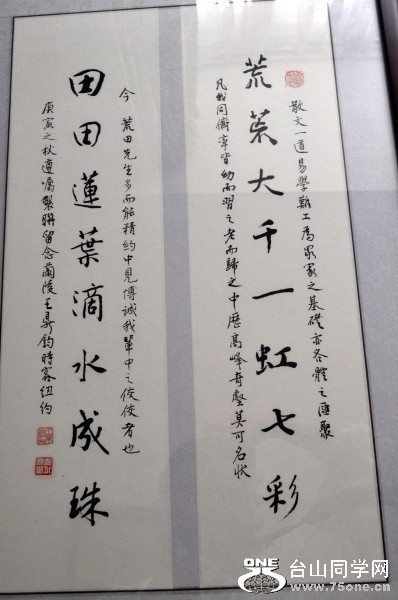 散文一道易學難工為眾家之基礎亦各體之匯聚
荒荒大千一虹七彩
凡我同儕率皆幼而習之老而歸之中歷高峰奇壑莫可名狀
今荒田先生多而能精約中見博誠我輩中之佼佼者也
田田蓮葉滴水成珠
庚寅之秋遵屬製聯留念蘭陵王鼎鈞時客紐約
ONE
台山同学网
www.75one.cn